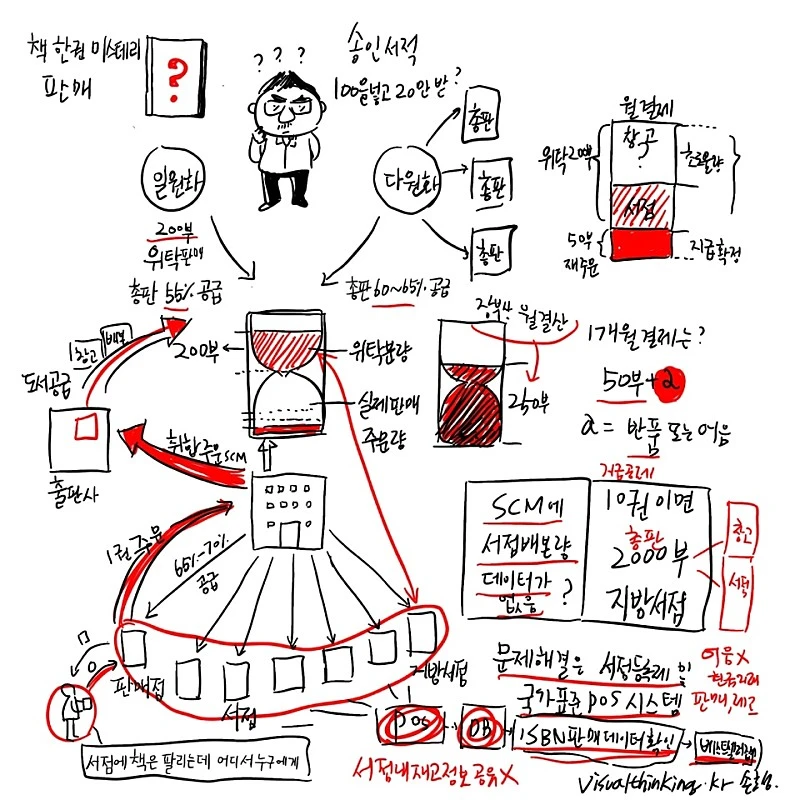 책 한권 미스테리
판매
?
? ? ?
송인서적
100을 넣고 20만 받?
일원화
다원화
총판
총판
총판
월결제
위탁200부
창고
?
서점
5부
재주문
지급확정
200부
위탁판매
총판 55% 공급
총판 60~65% 공급
창고
도서공급
출판사
취합주문SCM
200부
위탁물량
실제판매
주문량
장부상 월결산
250부
1개월 결제는?
50부+α
α = 반품 또는 어음
1권 주문
65%~70%
공급
SCM에
서점배본량
데이터가
없음 ?
10권이면
총판
2000부
지방서점
창고
서점
판매점
서점
지방서점
문제해결은 서점등록제 및
국가표준 POS 시스템
어음X
POS
DB
ISBN판매데이터확인
서점내재고정보공유X
서점에 책은 팔리는데 어디서 누구에게
visualthinking.kr